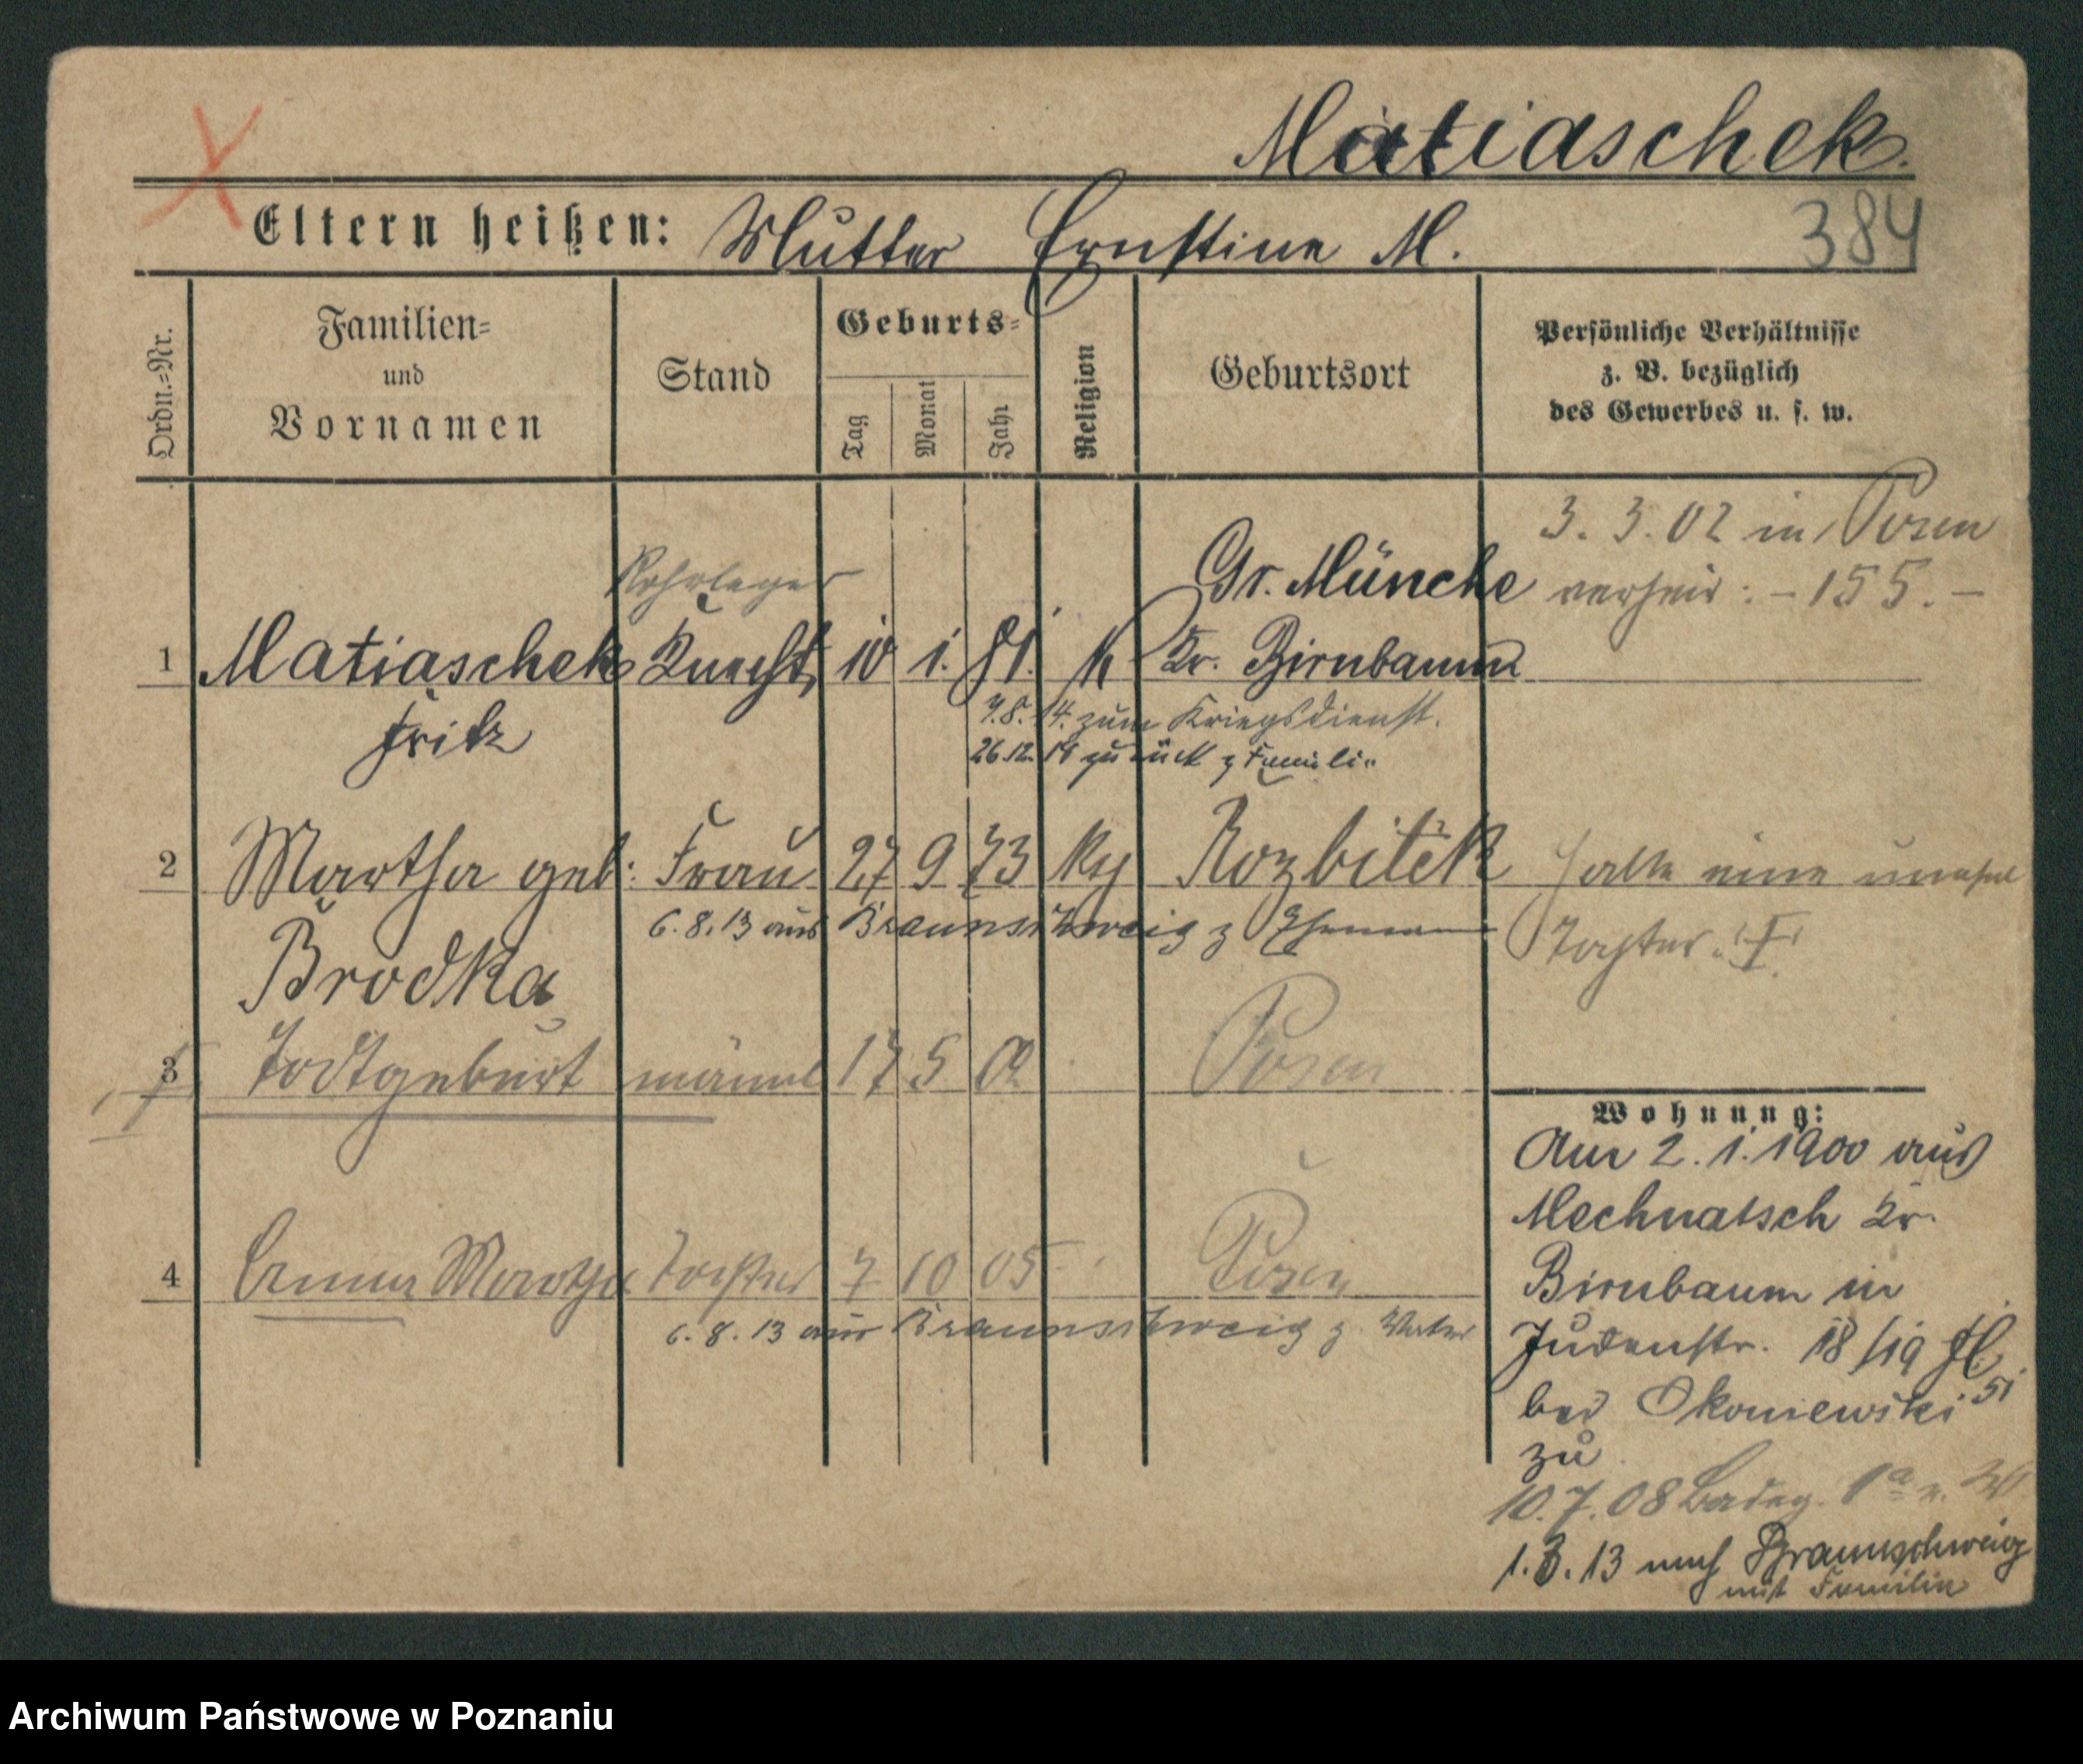 Matiaschek.
Eltern heißen: Mutter Ernstine M.
384
Ordn.=Nr.
Familien=
und
Vornamen
Stand
Geburts=
Tag
Monat
Jahr
Religion
Geburtsort
Persönliche Verhältnisse
z. B. bezüglich
des Gewerbes u. s. w.
3. 3. 02 in Posen
verheir: - 155. -
Rohrleger
Gr. Münche
1 Matiaschek Knecht 10 1. 81. K Kr. Birnbaum
Fritz
7.8.14. zum Kriegsdienst.
26.12.14 zurück z Familie
2 Martha geb: Frau 27 9 73 kg Rozbitek
Hatte eine unehel
Tochter. †
6. 8. 13 aus Braunschweig z Ehemann
Brodka
3 Todtgeburt männl 17 5 02 Posen
4 Martha Tochter 7 10 05 Posen
6. 8. 13 aus Braunschweig z. Vater
Wohnung:
Am 2. 1. 1900 aus
Mechnatsch Kr.
Birnbaum in
Judenstr. 18/19
bei Okoniewski
zu
10. 7. 08
1. 3. 13 nach Braunschweig
mit Familie
Archiwum Państwowe w Poznaniu